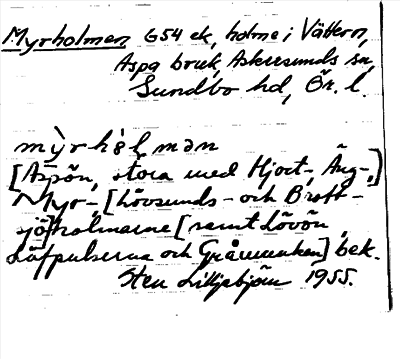 Myrholmen G54 ek, holme i Vättern,
Aspa bruk, Askersunds sn,
Sundbo hd, Ör. l.
mỳrhòlmən
[Aspön, stora med Hjort-, Äng-,]
Myr-, [Lövsunds- och Brott-
sjö]holmarne [samt Lövön,
och Gråmunken] bek.
Sten Lilljebjörn 1955.